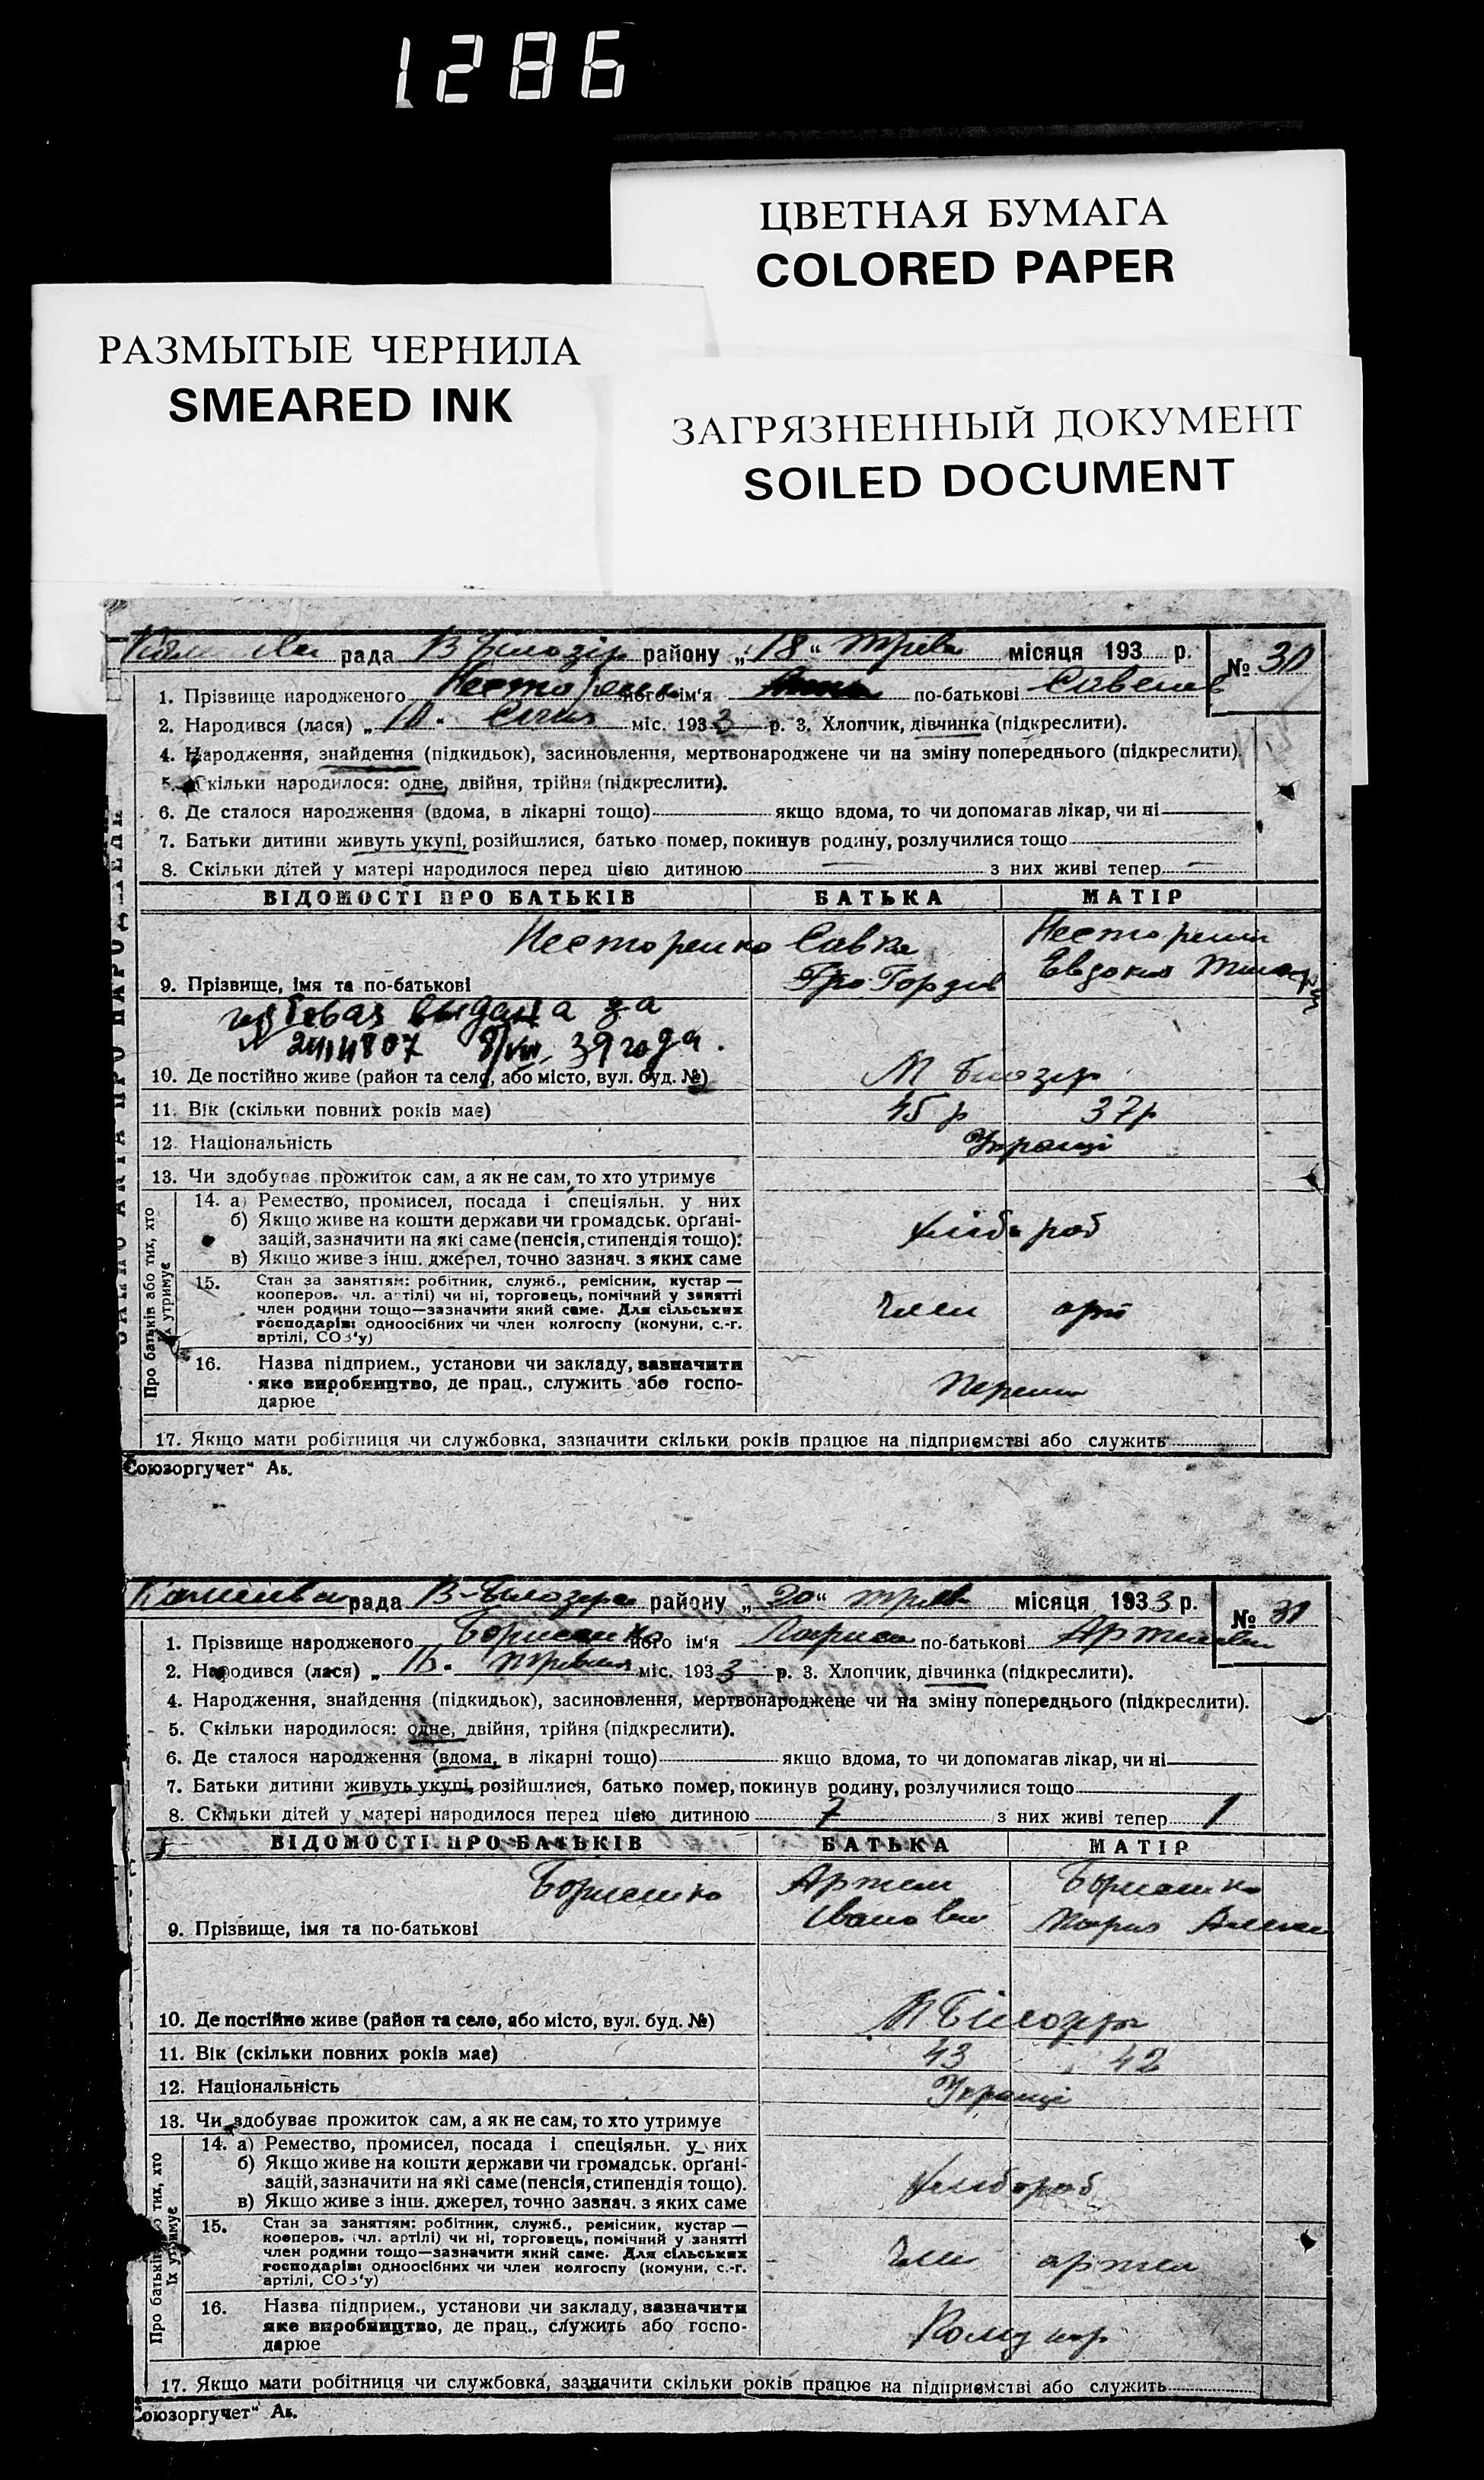 1286
ЦВЕТНАЯ БУМАГА
COLORED PAPER
РАЗМЫТЫЕ ЧЕРНИЛА
SMEARED INK
ЗАГРЯЗНЕННЫЙ ДОКУМЕНТ
SOILED DOCUMENT
рада В Білозір району „18“ місяця 193 р. № 30
1. Прізвище народженого ім'я по-батькові
2. Народився (лася) „ “ міс. 1933 р. 3. Хлопчик, дівчинка (підкреслити).
4. Народження, знайдення (підкидьок), засиновлення, мертвонароджене чи на зміну попереднього (підкреслити).
5. Скільки народилося: одне, двійня, трійня (підкреслити).
6. Де сталося народження (вдома, в лікарні тощо) якщо вдома, то чи допомагав лікар, чи ні
7. Батьки дитини живуть укупі, розійшлися, батько помер, покинув родину, розлучилися тощо
8. Скільки дітей у матері народилося перед цією дитиною з них живі тепер
ВІДОМОСТІ ПРО БАТЬКІВ БАТЬКА МАТІР
Несторенко Савка
Гордів Евдокия
9. Прізвище, імя та по-батькові
выдана за
№ 39 года.
10. Де постійно живе (район та село, або місто, вул. буд. №) М Білозір
11. Вік (скільки повних років має) 45 р 37 р
12. Національність Українці
13. Чи здобуває прожиток сам, а як не сам, то хто утримує
Про батьків або тих, хто їх утримує
14. а) Ремество, промисел, посада і спеціяльн. у них
б) Якщо живе на кошти держави чи громадськ. орґані-
зацій, зазначити на які саме (пенсія, стипендія тощо).
в) Якщо живе з інш. джерел, точно зазнач. з яких саме
хлібороб
15. Стан за заняттям: робітник, служб., ремісник, кустар —
кооперов. чл. артілі) чи ні, торговець, помічний у занятті
член родини тощо—зазначити який саме. Для сільських
господарів: одноосібних чи член колгоспу (комуни, с.-г.
артілі, СОЗ'у)
Член арт
16. Назва підприєм., установи чи закладу, зазначити
яке виробництво, де прац., служить або госпо-
дарює
17. Якщо мати робітниця чи службовка, зазначити скільки років працює на підприємстві або служить
Союзоргучет“ Ак.
рада В-Білозірс району „20“ місяця 1933 р. № 31
1. Прізвище народженого Борисенко його ім'я Лариса по-батькові Артемівн
2. Народився (лася) „ “ міс. 1933 р. 3. Хлопчик, дівчинка (підкреслити).
4. Народження, знайдення (підкидьок), засиновлення, мертвонароджене чи на зміну попереднього (підкреслити).
5. Скільки народилося: одне, двійня, трійня (підкреслити).
6. Де сталося народження (вдома, в лікарні тощо) якщо вдома, то чи допомагав лікар, чи ні
7. Батьки дитини живуть укупі, розійшлися, батько помер, покинув родину, розлучилися тощо
8. Скільки дітей у матері народилося перед цією дитиною 7 з них живі тепер 1
ВІДОМОСТІ ПРО БАТЬКІВ БАТЬКА МАТІР
Борисенко Артем Борисенко
Іванович Мария
9. Прізвище, імя та по-батькові
10. Де постійно живе (район та село, або місто, вул. буд. №) М Білозір
11. Вік (скільки повних років має) 43 42
12. Національність Українці
13. Чи здобуває прожиток сам, а як не сам, то хто утримує
Про батьків або тих, хто їх утримує
14. а) Ремество, промисел, посада і спеціяльн. у них
б) Якщо живе на кошти держави чи громадськ. орґані-
зацій, зазначити на які саме (пенсія, стипендія тощо).
в) Якщо живе з інш. джерел, точно зазнач. з яких саме
хлібороб
15. Стан за заняттям: робітник, служб., ремісник, кустар —
кооперов. чл. артілі) чи ні, торговець, помічний у занятті
член родини тощо—зазначити який саме. Для сільських
господарів: одноосібних чи член колгоспу (комуни, с.-г.
артілі, СОЗ'у)
Член артел
16. Назва підприєм., установи чи закладу, зазначити
яке виробництво, де прац., служить або госпо-
дарює
17. Якщо мати робітниця чи службовка, зазначити скільки років працює на підприємстві або служить
Союзоргучет“ Ак.